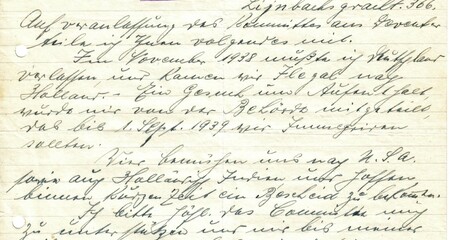 Lijnbaansgracht. 366.
Auf veranlassung des Kommittes aus Deventer
teile ich Ihnen volgendes mit.
Im November 1938 mußte ich Deutschland
verlassen, und kamen wir Ilegal nach
Holland. - Ein Gesuch um Aufenthalt,
wurde mir von der Behörde mitgeteilt,
das bis 1. Sept. 1939 wir Immegriren
sollten.
Wir bemühen uns nach U.S.A.
sowie auch Holländisch Indien und hoffen
binnen kurzen Zeit ein Bescheid zu bekommen.
Ich bitte höfl. das Committe mich
zu unterstützen und mir bis meiner